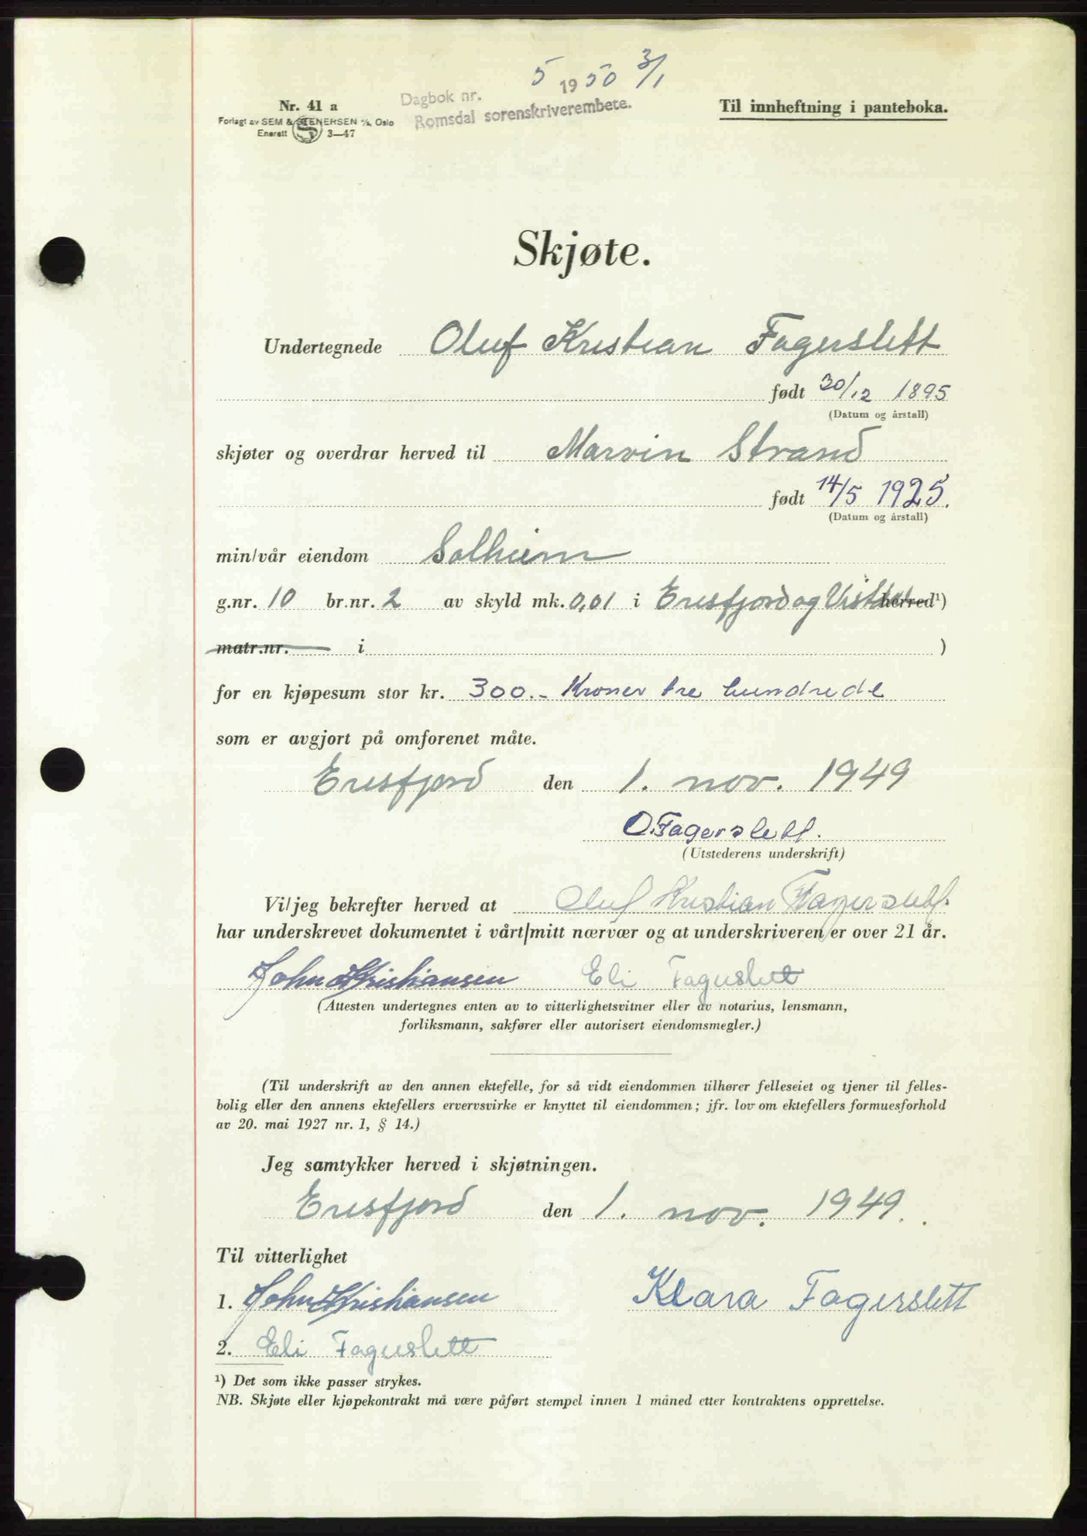 5 1950 3/1
Dagbok nr.
Romsdal sorenskriverembete.
Nr. 41 a
Forlagt av SEM & STENERSEN A/S, Oslo
Enerett S 3—47
Til innheftning i panteboka.
Skjøte.
Undertegnede Oluf Kristian Fagerslett
født 30/12 1895
(Datum og årstall)
skjøter og overdrar herved til Marvin Strand
født 14/5 1925.
(Datum og årstall)
min/vår eiendom Solheim
g.nr. 10 br.nr. 2 av skyld mk. 0,01 i Eresfjord og Vistdal herred¹)
matr.nr. i )
for en kjøpesum stor kr. 300.- Kroner tre hundrede
som er avgjort på omforenet måte.
Eresfjord den 1. nov. 1949
O.Fagerslett.
(Utstederens underskrift)
Vi/jeg bekrefter herved at Oluf Kristian Fagerslett.
har underskrevet dokumentet i vårt/mitt nærvær og at underskriveren er over 21 år.
John Kristiansen Eli Fagerslett
(Attesten undertegnes enten av to vitterlighetsvitner eller av notarius, lensmann,
forliksmann, sakfører eller autorisert eiendomsmegler.)
(Til underskrift av den annen ektefelle, for så vidt eiendommen tilhører felleseiet og tjener til felles-
bolig eller den annens ektefellers ervervsvirke er knyttet til eiendommen; jfr. lov om ektefellers formuesforhold
av 20. mai 1927 nr. 1, § 14.)
Jeg samtykker herved i skjøtningen.
Eresfjord den 1. nov. 1949.
Til vitterlighet
1. John Kristiansen Klara Fagerslett
2. Eli Fagerslett
¹) Det som ikke passer strykes.
NB. Skjøte eller kjøpekontrakt må være påført stempel innen 1 måned etter kontraktens opprettelse.